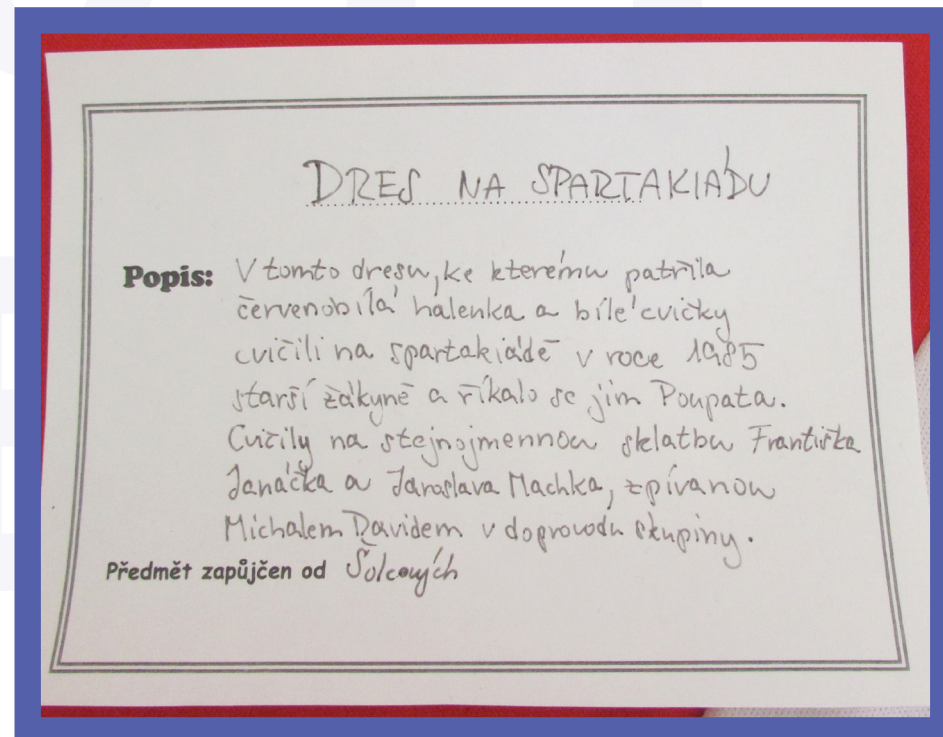 DRES NA SPARTAKIÁDU
Popis: V tomto dresu, ke kterému patřila
červenobílá halenka a bílé cvičky
cvičili na spartakiádě v roce 1985
starší žákyně a říkalo se jim Poupata.
Cvičily na stejnojmennou sklatbu Františka
Janáčka a Jaroslava Machka, zpívanou
Michalem Davidem v doprovodu skupiny.
Předmět zapůjčen od Šolcových